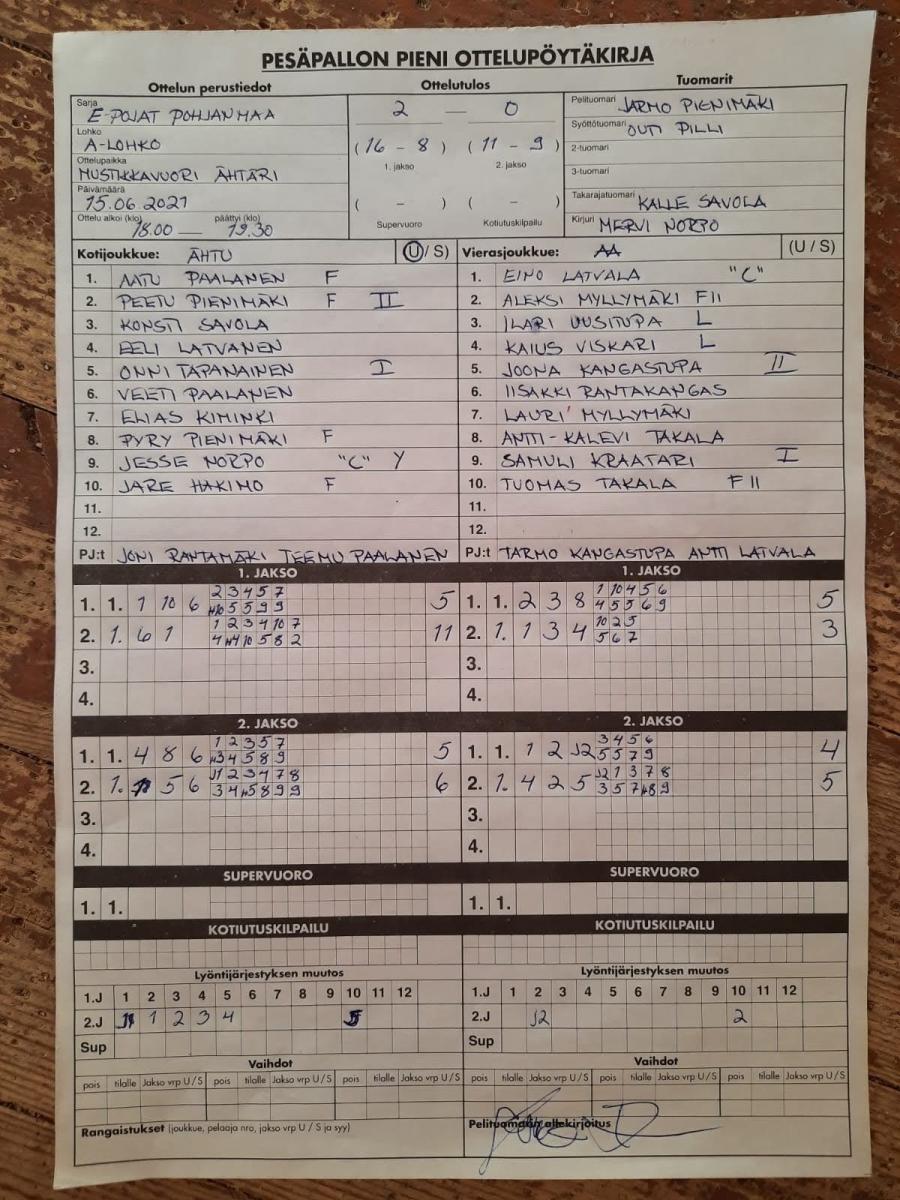 PESÄPALLON PIENI OTTELUPÖYTÄKIRJA
Ottelun perustiedot Ottelutulos Tuomarit
Sarja E-POJAT POHJANMAA 2 — 0 Pelituomari JARMO PIENIMÄKI
Lohko A-LOHKO Syöttötuomari OUTI PILLI
(16 - 8) (11 - 9) 2-tuomari
1. jakso 2. jakso
Ottelupaikka MUSTIKKAVUORI ÄHTÄRI 3-tuomari
Päivämäärä 15.06.2021 ( - ) ( - ) Takarajatuomari KALLE SAVOLA
Ottelu alkoi (klo) 18.00 — päättyi (klo) 19.30 Supervuoro Kotiutuskilpailu Kirjuri MERVI NORPO
Kotijoukkue: ÄHTU (U/ S) Vierasjoukkue: AA (U / S)
1. AATU PAALANEN F 1. EINO LATVALA "C"
2. PEETU PIENIMÄKI F II 2. ALEKSI MYLLYMÄKI F II
3. KONSTI SAVOLA 3. ILARI UUSITUPA L
4. EELI LATVANEN 4. KAIUS VISKARI L
5. ONNI TAPANAINEN I 5. JOONA KANGASTUPA II
6. VEETI PAALANEN 6. IISAKKI RANTAKANGAS
7. ELIAS KIMINKI 7. LAURI MYLLYMÄKI
8. PYRY PIENIMÄKI F 8. ANTTI-KALEVI TAKALA
9. JESSE NORPO "C" Y 9. SAMULI KRAATARI I
10. JARE HAKIMO F 10. TUOMAS TAKALA F II
11. 11.
12. 12.
PJ:t JONI RANTAMÄKI TEEMU PAALANEN PJ:t TARMO KANGASTUPA ANTTI LATVALA
1. JAKSO 1. JAKSO
1. 1. 1 10 6 2 3 4 5 7 5 1. 1. 2 3 8 1 10 4 5 6 5
5 5 9 9 4 5 5 6 9
2. 1. 6 1 1 2 3 4 10 7 11 2. 1. 1 3 4 10 2 5 3
4 10 5 8 2 5 6 7
3. 3.
4. 4.
2. JAKSO 2. JAKSO
1. 1. 4 8 6 1 2 3 5 7 5 1. 1. 1 2 J2 3 4 5 6 4
3 4 5 8 9 5 5 7 9
2. 1. 5 6 J1 2 3 4 7 8 6 2. 1. 4 2 5 J2 1 3 7 8 5
3 4 5 8 9 9 3 5 7 8 9
3. 3.
4. 4.
SUPERVUORO SUPERVUORO
1. 1. 1. 1.
KOTIUTUSKILPAILU KOTIUTUSKILPAILU
Lyöntijärjestyksen muutos Lyöntijärjestyksen muutos
1.J 1 2 3 4 5 6 7 8 9 10 11 12 1.J 1 2 3 4 5 6 7 8 9 10 11 12
2.J 1 2 3 4 2.J J2 2
Sup Sup
Vaihdot Vaihdot
pois tilalle Jakso vrp U / S pois tilalle Jakso vrp U / S pois tilalle Jakso vrp U / S pois tilalle Jakso vrp U / S pois tilalle Jakso vrp U / S pois tilalle Jakso vrp U / S
Rangaistukset (joukkue, pelaaja nro, jakso vrp U / S ja syy) Pelituomarin allekirjoitus